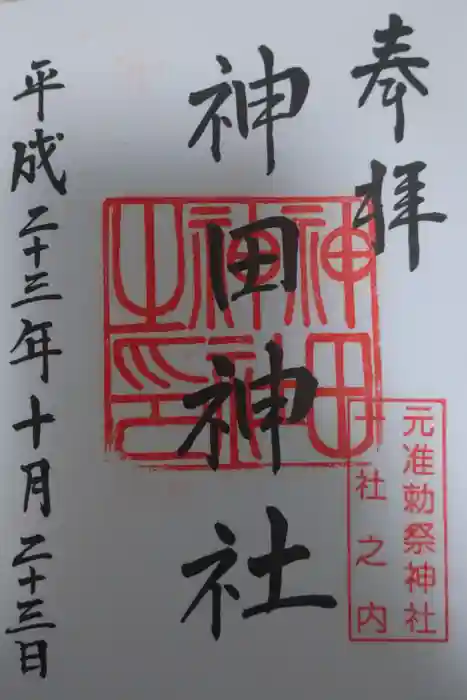 奉拝
元准勅祭神社
十社之内
神田神社
神田
神社
之印
平成二十三年十月二十三日